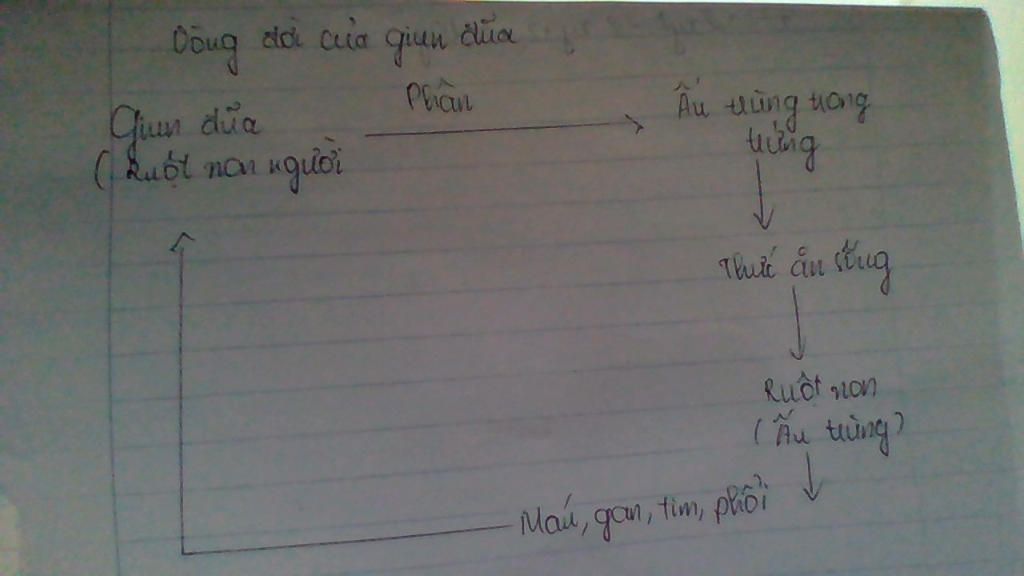 Vòng đời của giun đũa
Phân
Giun đũa
(Ruột non người
Ấu trùng trong
trứng
Thức ăn sống
Ruột non
(Ấu trùng)
Máu, gan, tim, phổi